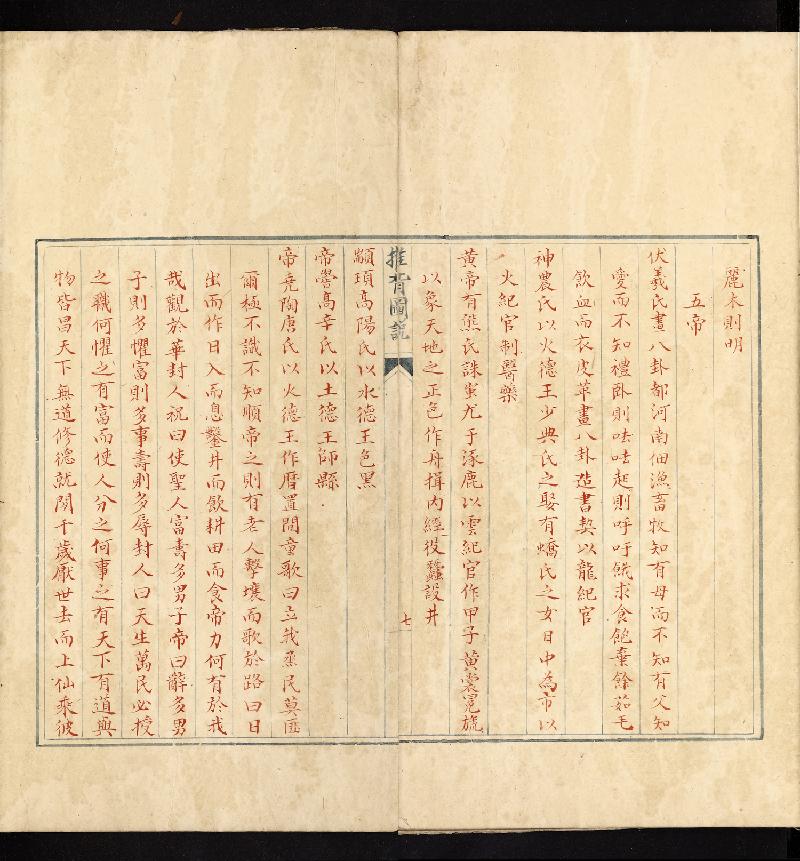 麗木則明
五帝
伏羲氏畫八卦都河南佃漁畜牧知有母而不知有父知
愛而不知禮臥則呿呿起則吁吁饑求食飽棄餘茹毛
飲血而衣皮革畫八卦造書契以龍紀官
神農氏以火德王少典氏之娶有蟜氏之女日中為市以
火紀官制醫藥
黃帝有熊氏誅蚩尤于涿鹿以雲紀官作甲子黃裳冕旒
以象天地之正色作舟揖內經役蠶設井
推背圖說
七
顓頊高陽氏以水德王色黑
帝嚳高辛氏以土德王師縣
帝堯陶唐氏以火德王作曆置閏童歌曰立我烝民莫匪
爾極不識不知順帝之則有老人擊壤而歌於路曰日
出而作日入而息鑿井而飲耕田而食帝力何有於我
哉觀於華封人祝曰使聖人富壽多男子帝曰辭多男
子則多懼富則多事壽則多辱封人曰天生萬民必授
之職何懼之有富而使人分之何事之有天下有道與
物皆昌天下無道修德就閒千歲厭世去而上仙乘彼